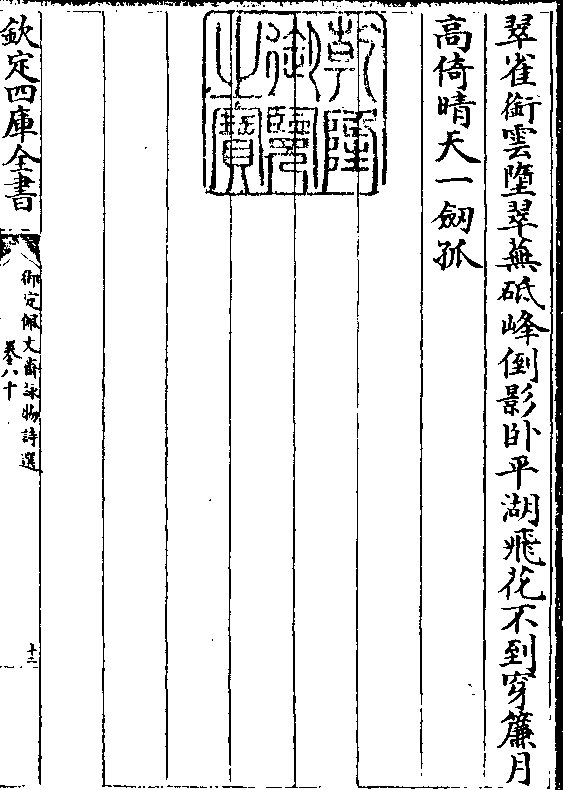 翠雀銜雲墮翠蕪砥峰倒影卧平湖飛花不到穿簾月
高倚晴天一劒孤
乾隆御覽之寶
欽定四庫全書
御定佩文齋詠物詩選
卷八十
十三